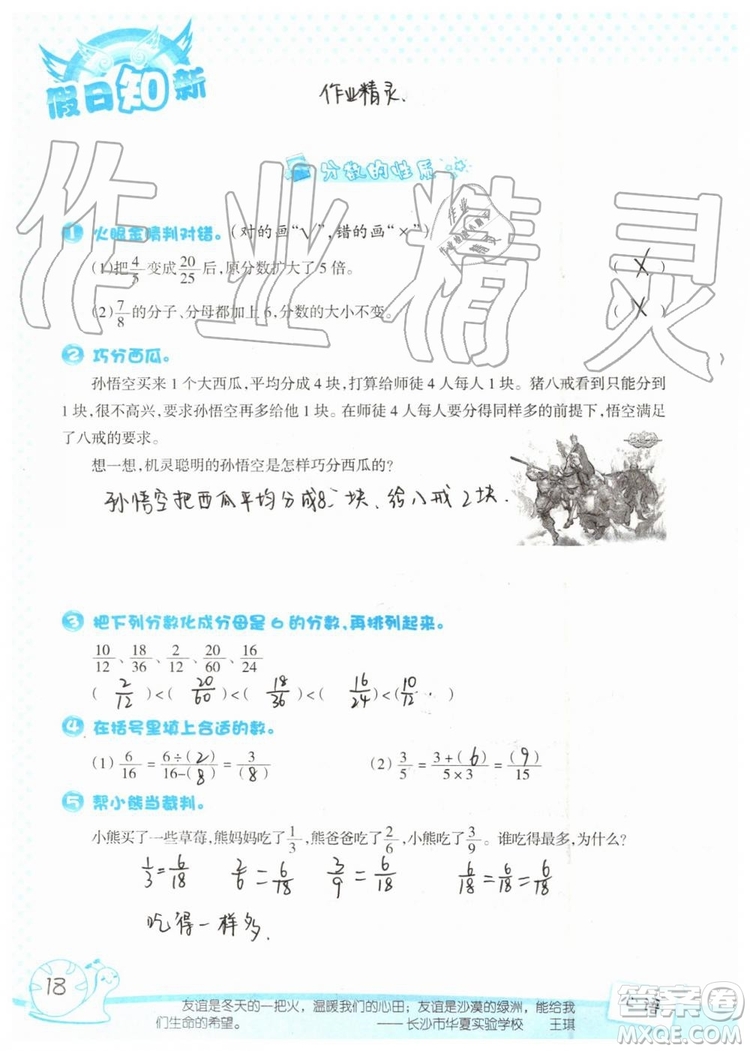 假日知新
作业精灵.
作业精灵
分数的性质
1 火眼金睛判对错。(对的画“√”,错的画“×”)
(1)把4/5变成20/25后,原分数扩大了5倍。 (×)
(2)7/8的分子、分母都加上6,分数的大小不变。 (×)
2 巧分西瓜。
孙悟空买来1个大西瓜,平均分成4块,打算给师徒4人每人1块。猪八戒看到只能分到
1块,很不高兴,要求孙悟空再多给他1块。在师徒4人每人要分得同样多的前提下,悟空满足
了八戒的要求。
想一想,机灵聪明的孙悟空是怎样巧分西瓜的?
孙悟空把西瓜平均分成8块、给八戒2块.
3 把下列分数化成分母是6的分数,再排列起来。
10/12、18/36、2/12、20/60、16/24
(2/12)<(20/60)<(18/36)<(16/24)<(10/12)
4 在括号里填上合适的数。
(1) 6/16=6÷(2)/16-(8)=3/(8) (2) 3/5=3+(6)/5×3=(9)/15
5 帮小熊当裁判。
小熊买了一些草莓,熊妈妈吃了1/3,熊爸爸吃了2/6,小熊吃了3/9。谁吃得最多,为什么?
1/3=6/18 2/6=6/18 3/9=6/18 6/18=6/18=6/18
吃得一样多.
18
友谊是冬天的一把火,温暖我们的心田;友谊是沙漠的绿洲,能给我
们生命的希望。 ——长沙市华夏实验学校 王琪
答案圈
MXQE.COM